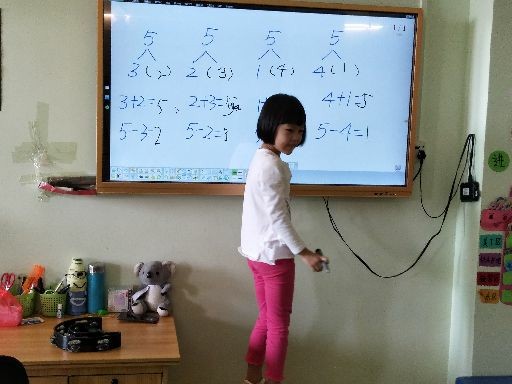 5 5 5 5
3 (2) 2 (3) 1 (4) 4 (1)
3+2=5, 2+3=5 4+1=5
5-3=2 5-2=3 5-4=1